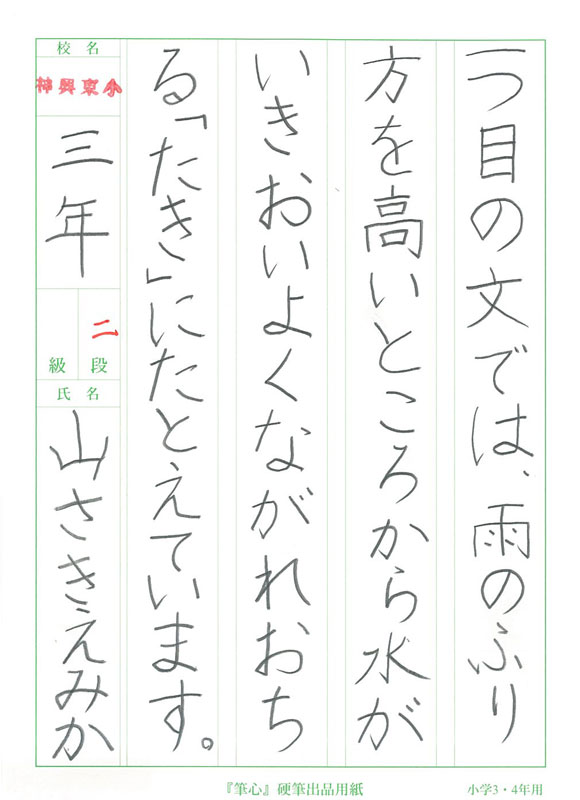 一つ目の文では、雨のふり
方を高いところから水が
いきおいよくながれおち
る「たき」にたとえています。
校名
神興東小
三年
二
段
級
氏名
山さきえみか
『筆心』硬筆出品用紙
小学3・4年用